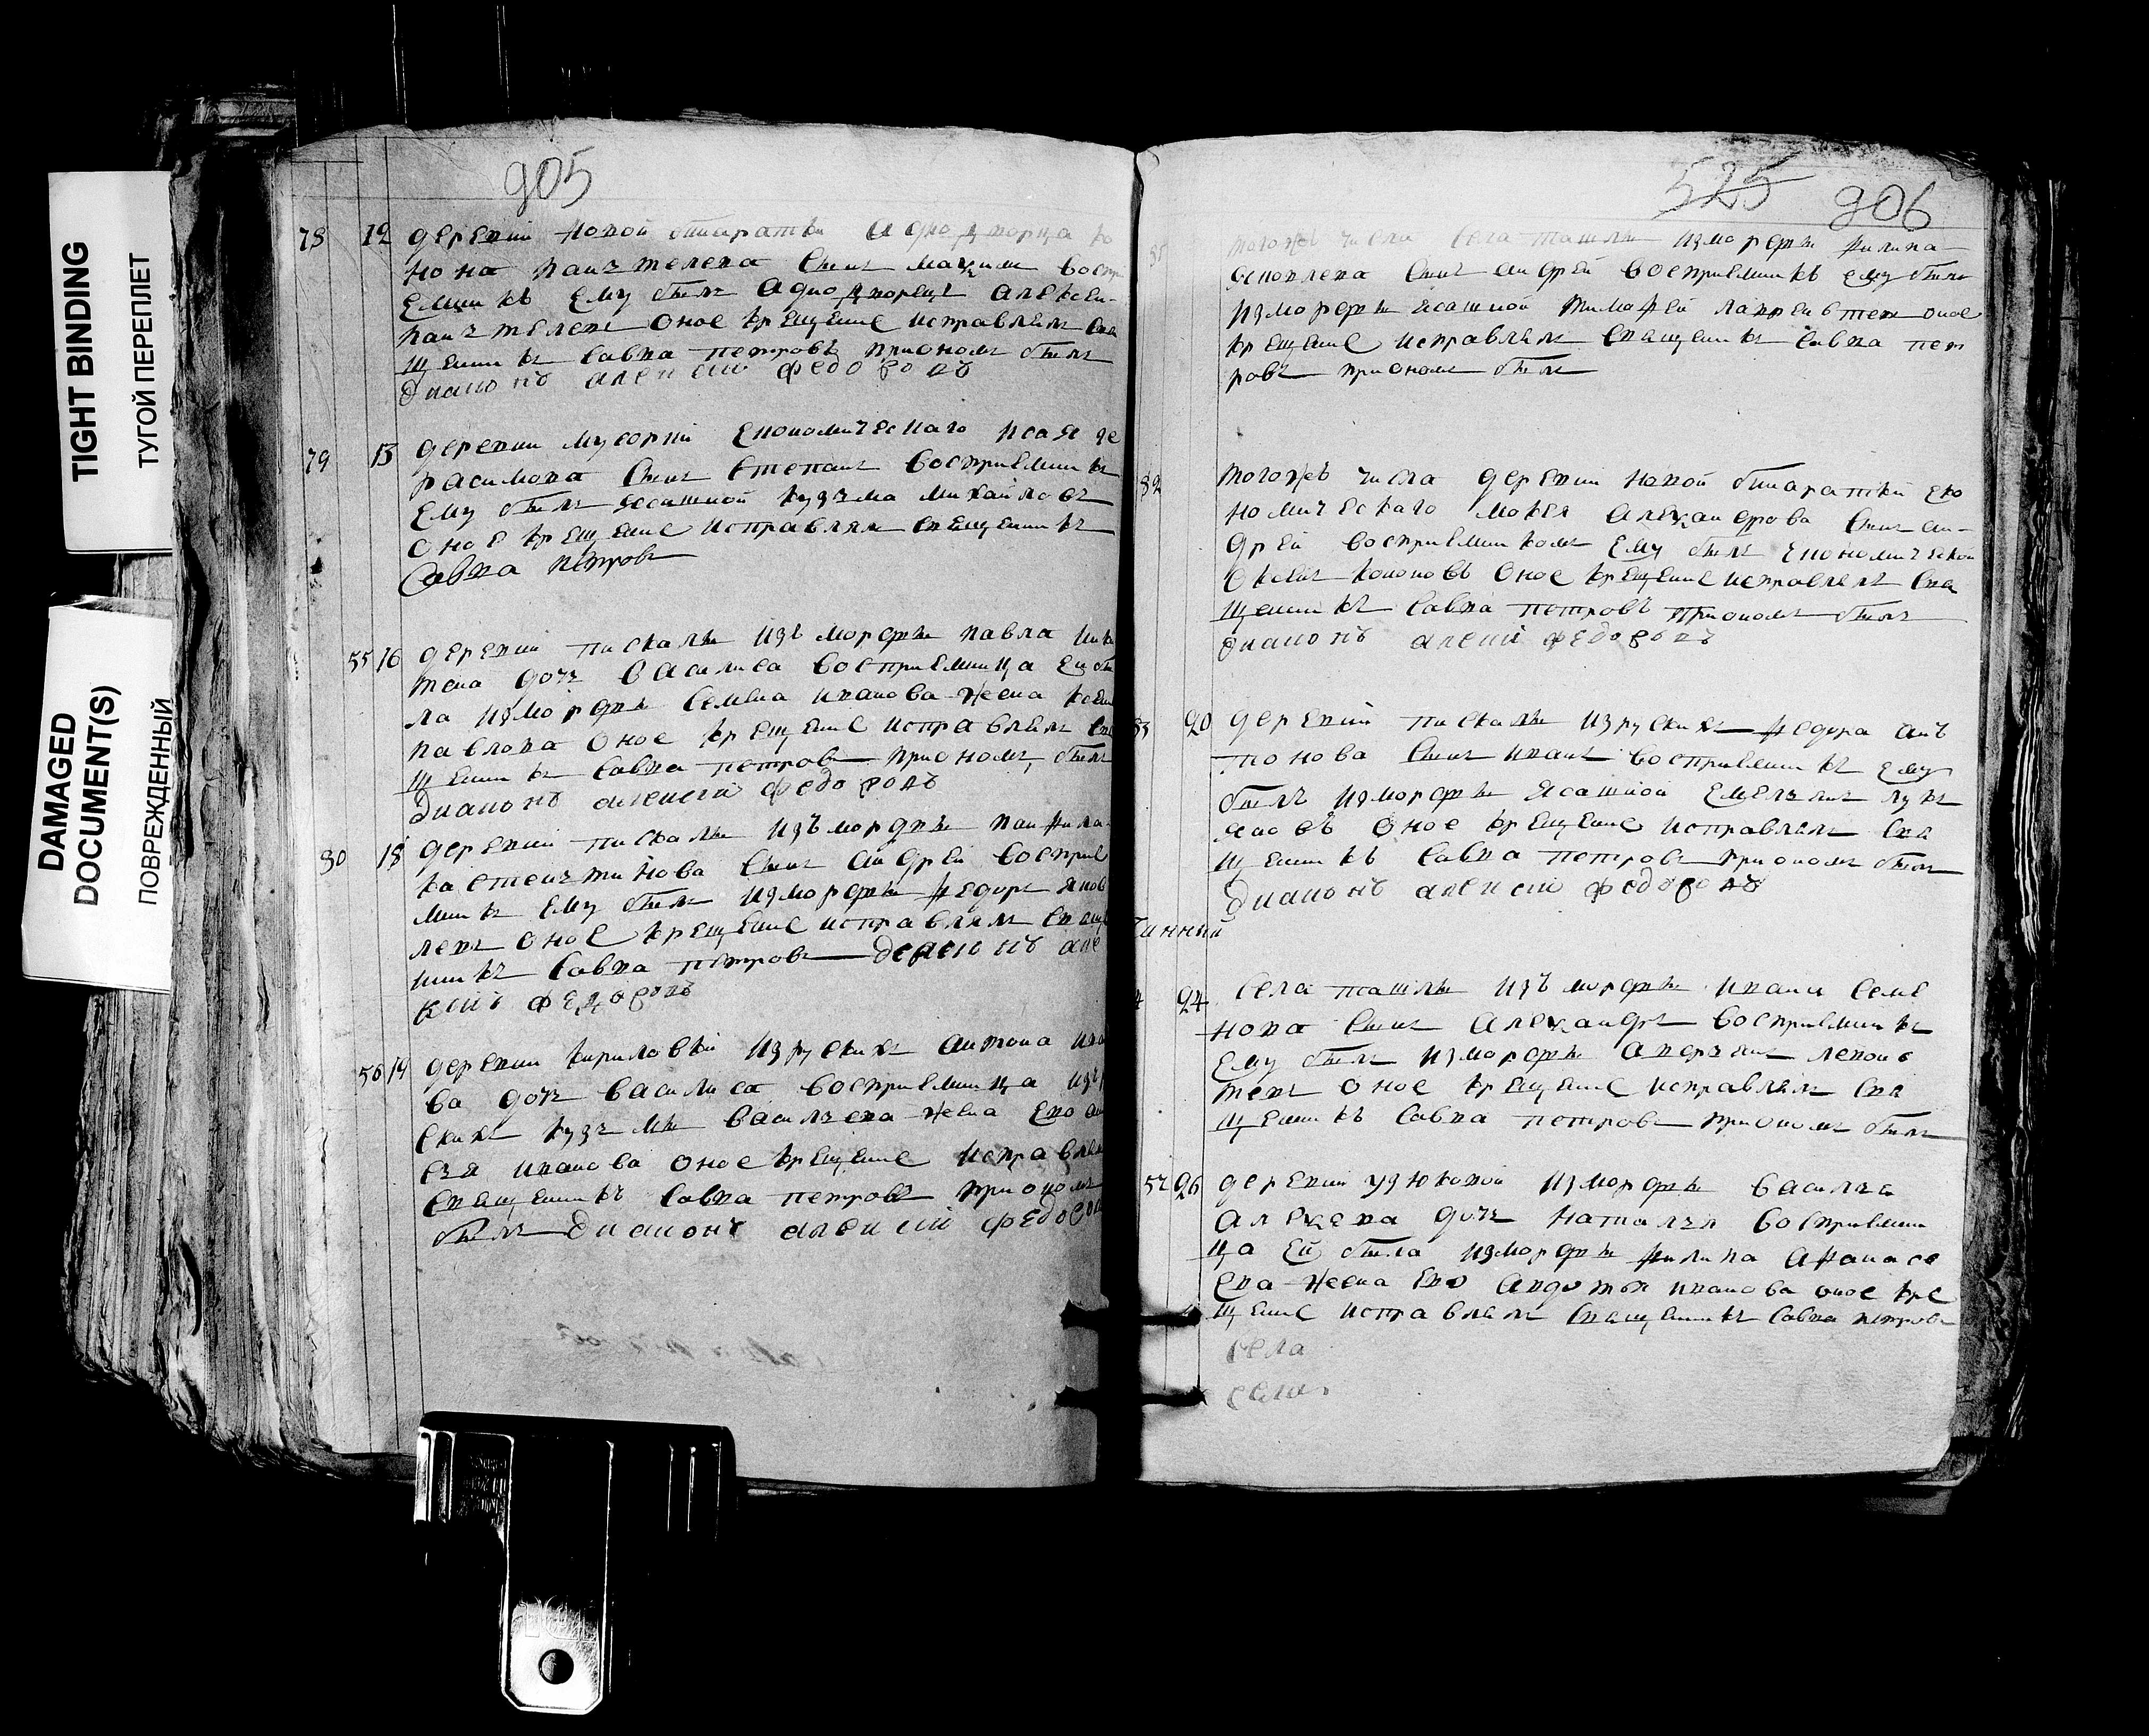 TIGHT BINDING
ТУГОЙ ПЕРЕПЛЕТ
DAMAGED
DOCUMENT(S)
ПОВРЕЖДЕННЫЙ
905
78 12 деревни новой бинаратки аднодворца ко
нона пантелева сынъ максим воспри
емникъ ему былъ аднодворецъ алексеи
пантелевъ оное крещение исправлялъ свя
щенникъ савва петровъ приономъ былъ
диаконъ алексий федоровъ
79 13 деревни мусорки економическаго исая ге
расимова сынъ степанъ восприемникъ
ему былъ ясашной кузма михайловъ
оное крещение исправлялъ священникъ
савва петровъ
55 16 деревни пискалы изъ мордвы павла ники
тена дочь василиса восприемница еи бы
ла измордвы семена иванова жена ксени
павлова оное крещение исправлялъ свя
щенникъ савва петровъ приономъ былъ
диаконъ алексий федоровъ
80 18 деревни пискалы изъ мордвы панфила
костентинова сынъ андрей восприе
мникъ ему былъ измордвы федоръ яков
левъ оное крещение исправлялъ священ
никъ савва петровъ диаконъ але
ксий федоровъ
56 19 деревни кириловки изруских антона ива
ва дочь василиса восприемница изру
скихъ кузмы васильева жена ево
иванова оное крещение исправлял
священникъ савва петровъ приономъ
былъ диаконъ алексий федоров
525 906
тогожъ числа села ташлы измордвы филипа
яковлева сынъ андрей восприемникъ ему былъ
измордвы ясашной тимофей лаврентевъ оное
крещение исправлялъ священникъ савва пет
ровъ приономъ былъ
82 тогожъ числа деревни новой бинаратки еко
номическаго мокея александрова сынъ ан
дрей восприемникомъ ему былъ економическои
кононовъ оное крещение исправлялъ свя
щенникъ савва петровъ приономъ былъ
диаконъ алексий федоровъ
83 20 деревни пискалы изруских федора ан
тонова сынъ иванъ восприемникъ ему
былъ измордвы ясашной емельянъ лукъ
яновъ оное крещение исправлялъ свя
щенникъ савва петровъ приономъ былъ
диаконъ алексий федоровъ
24 села ташлы изъ мордвы ивана семе
нова сынъ александръ восприемникъ
ему былъ измордвы аверьянъ леонь
тевъ оное крещение исправлялъ свя
щенникъ савва петровъ приономъ былъ
57 26 деревни узюковой измордвы василья
алексева дочь наталья восприемни
ца ей была измордвы филипа афанасе
ева жена ево авдотья иванова оное кре
щение исправлялъ священникъ савва петровъ
села
села